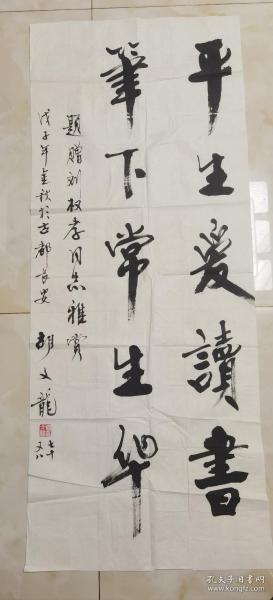 平生爱讀書
筆下常生华
題贈刘权孝同志雅賞
戊子年金秋於古都長安
胡文龍
七十又八
孔夫子旧书网